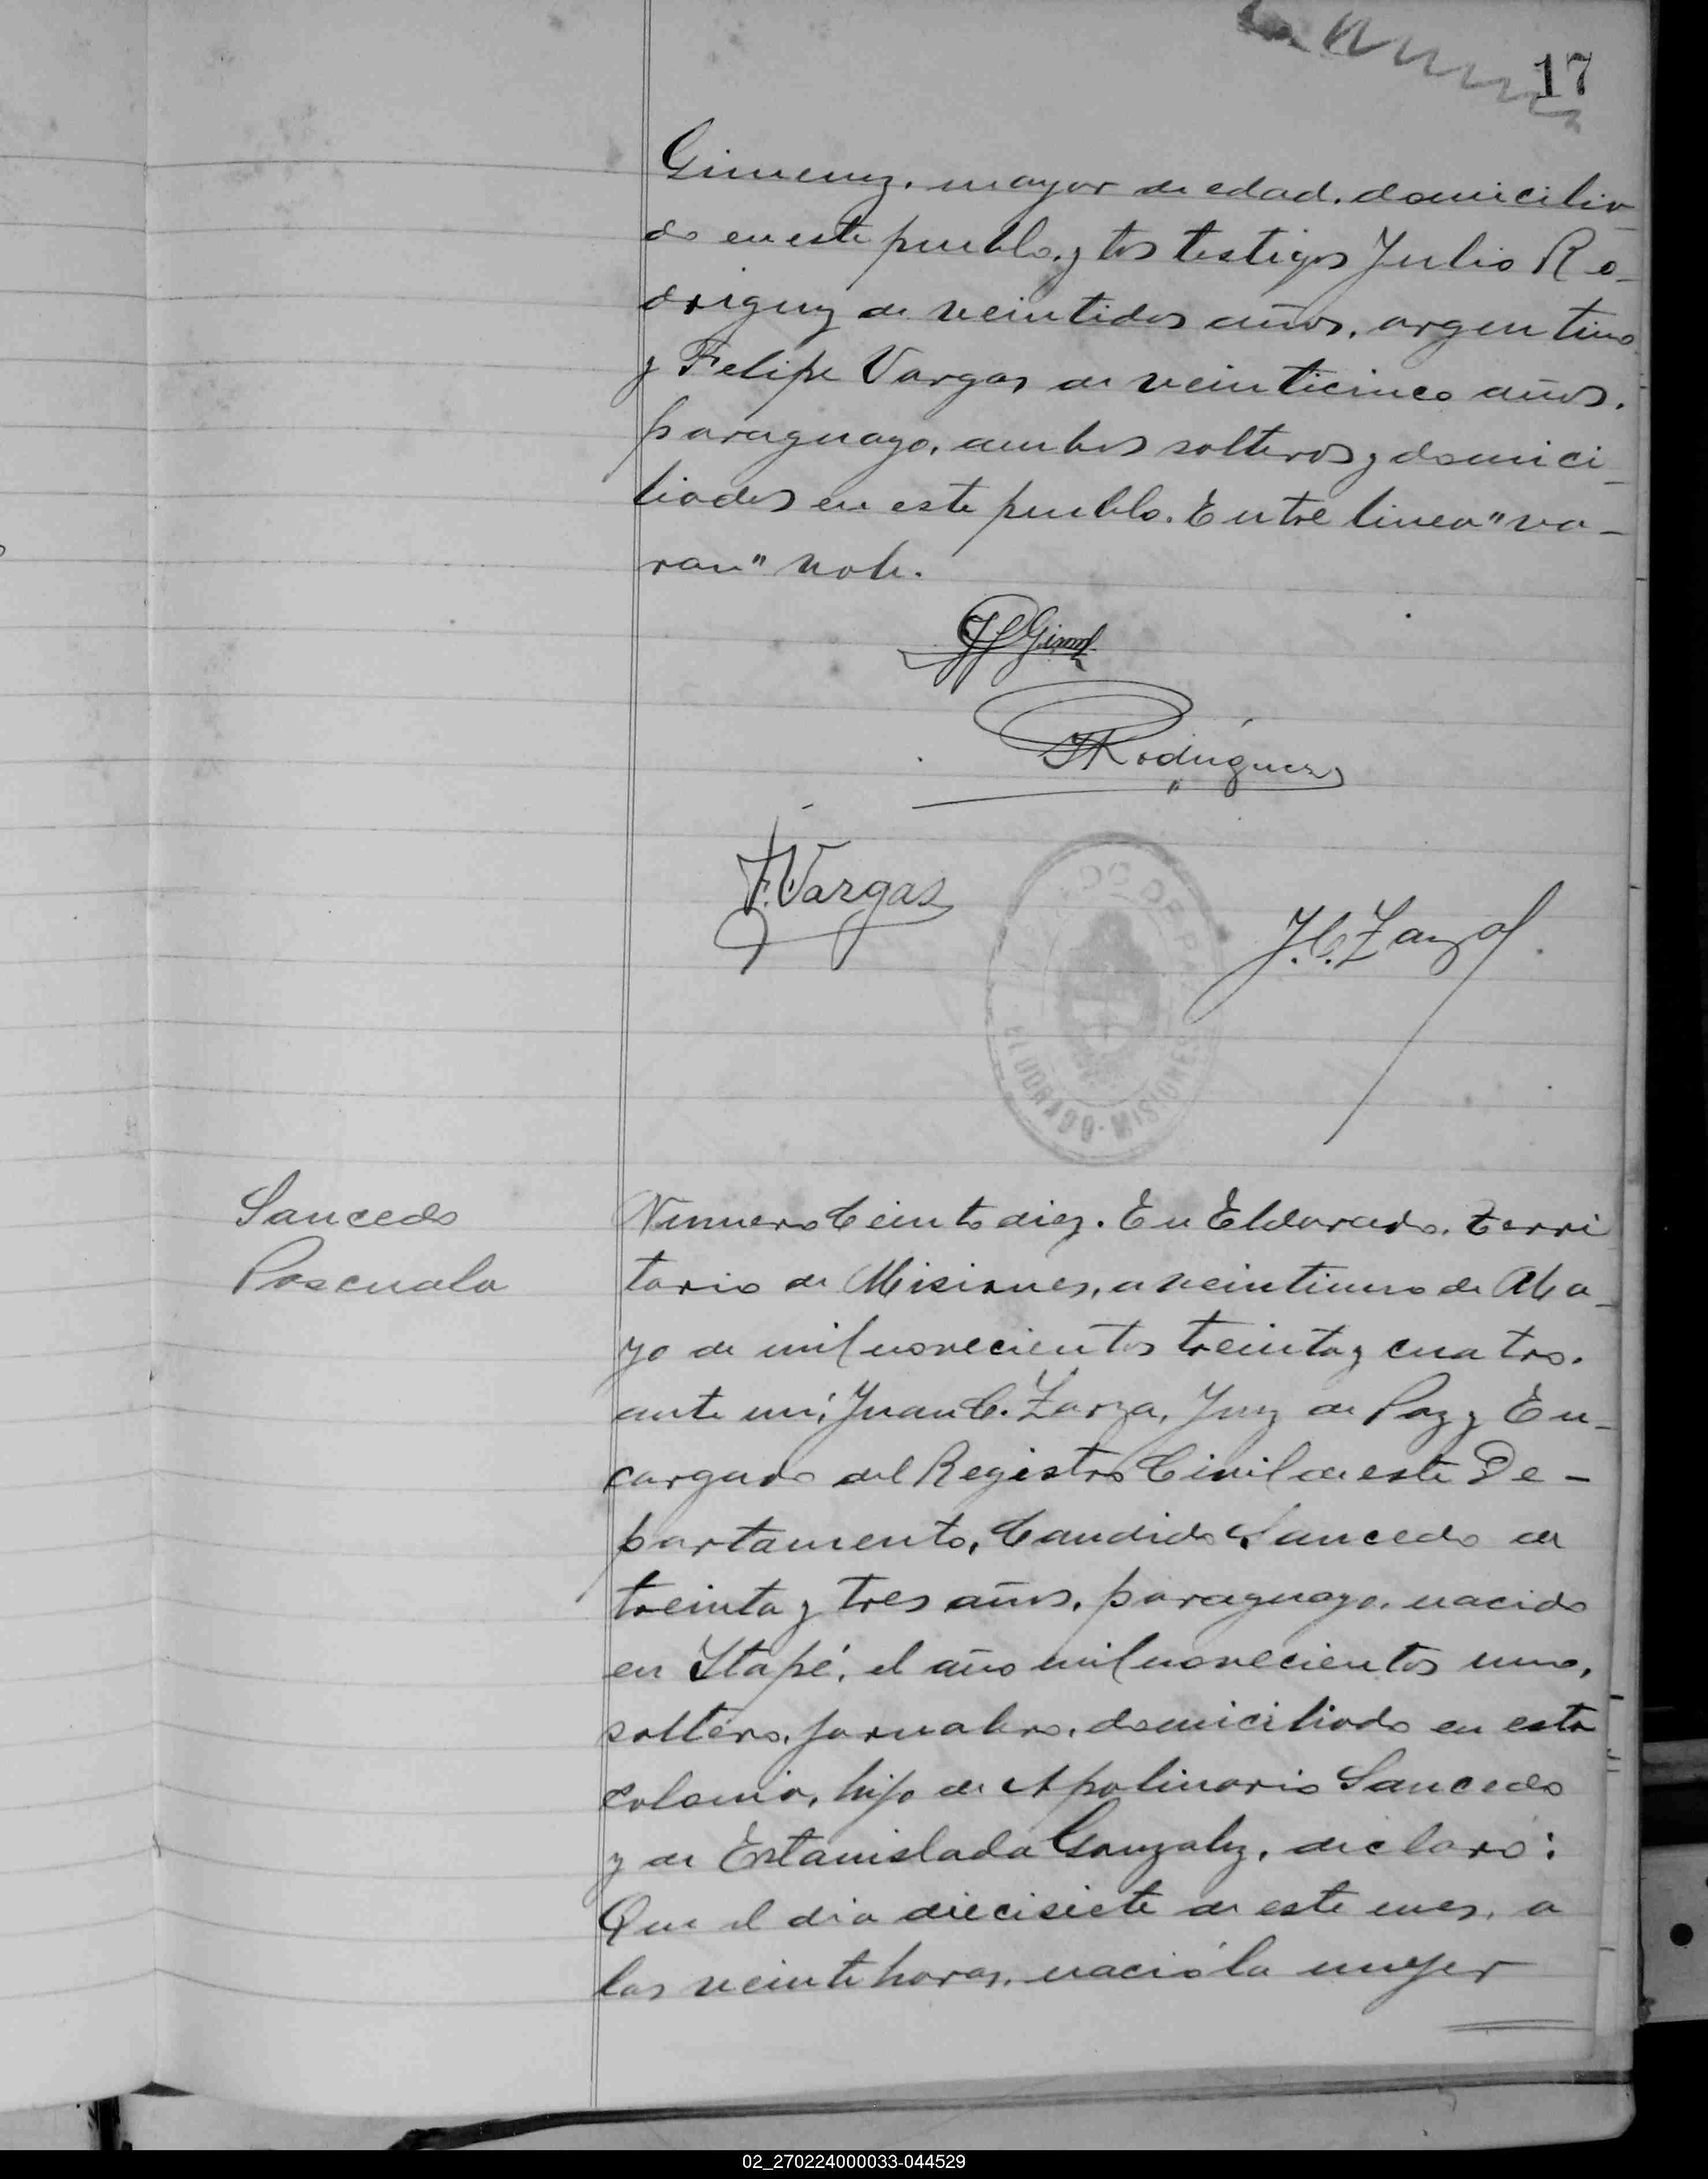 17
Gimenez, mayor de edad, domicilia
do en este pueblo, y los testigos Julio Ro-
driguez de veintidos años, argentino
y Felipe Vargas de veinticinco años,
paraguayo, ambos solteros y domici-
liados en este pueblo. Entre linea "va-
ron" vale.
JRodriguez
F. Vargas
J. C. Zarza
DO DE PAZ
ELDORADO - MISIONES
Saucedo
Pascuala
Numero Ciento diez. En Eldorado, Terri
torio de Misiones, a veintiuno de Ma-
yo de mil novecientos treinta y cuatro.
ante mi, Juan C. Zarza, Juez de Paz y En-
cargado del Registro Civil de este De-
partamento, Candido Saucedo de
treinta y tres años, paraguayo, nacido
en Itapé, el año mil novecientos uno,
soltero, jornalero, domiciliado en esta
colonia, hijo de Apolinario Saucedo
y de Estanislada Gonzalez, declaró:
Que el dia diecisiete de este mes, a
las veinte horas, nació la mujer
02_270224000033-044529